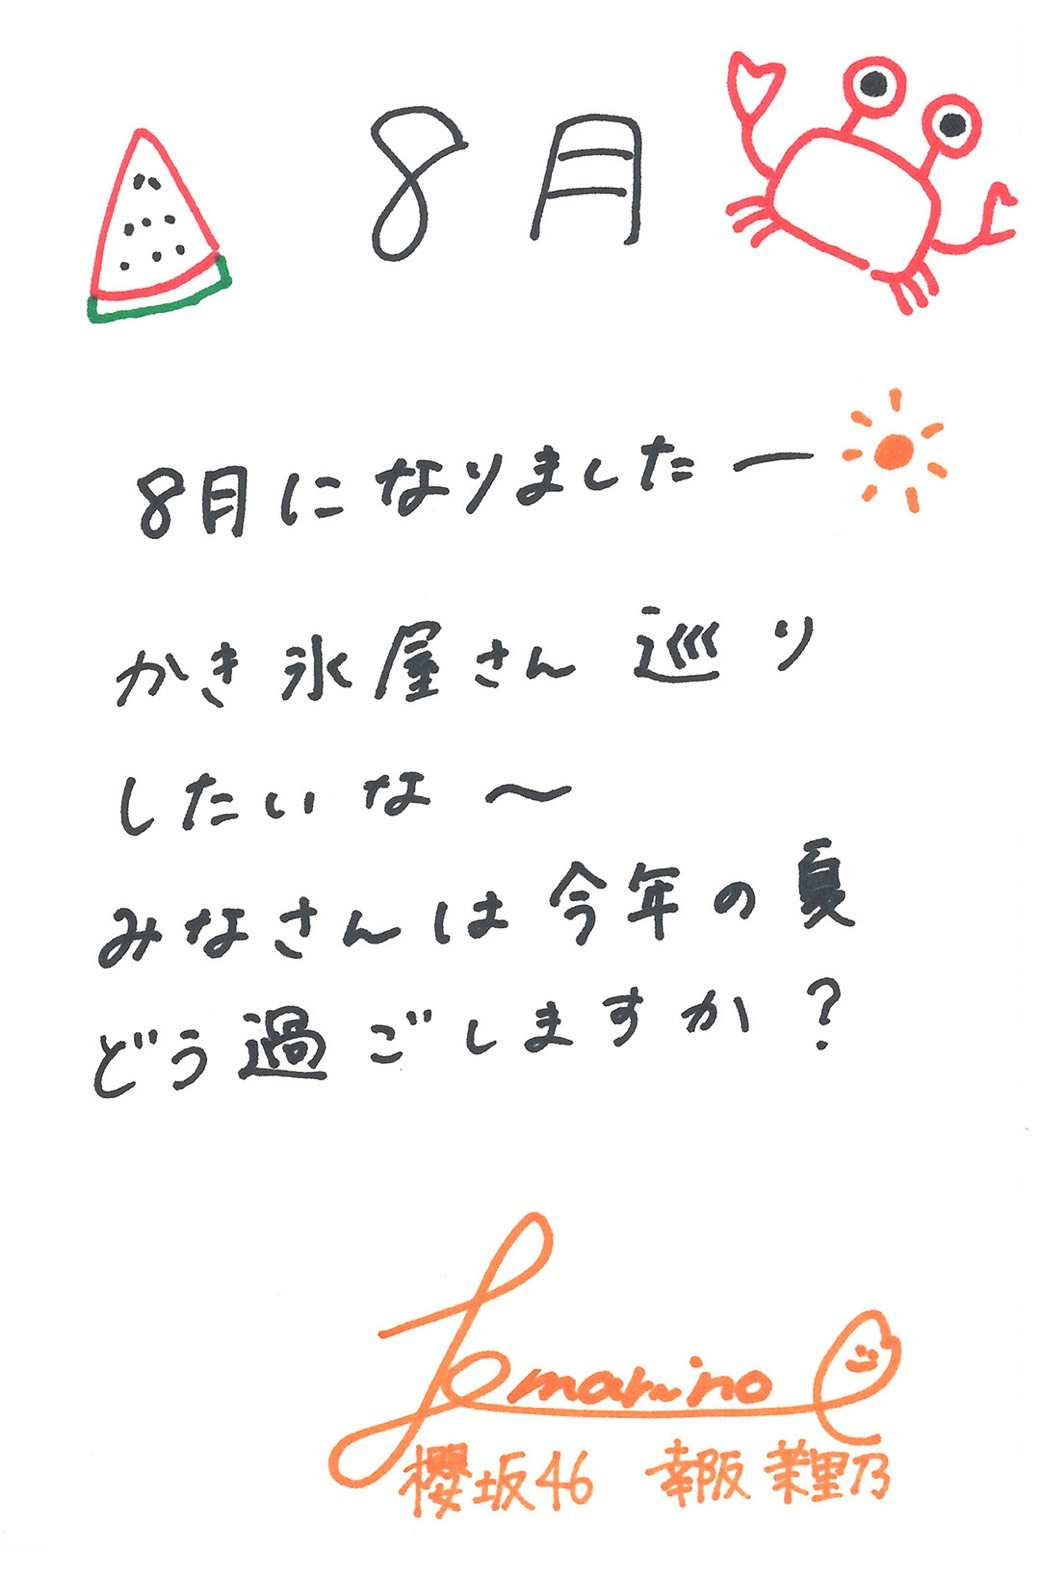 8月
8月になりましたー
かき氷屋さん巡り
したいな〜
みなさんは今年の夏
どう過ごしますか？
marino
櫻坂46 幸阪茉里乃